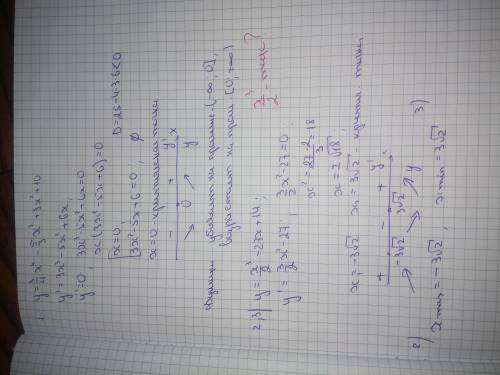 1. y = 3/4 x⁴ - 5/3 x³ + 3x² + 10
y' = 3x³ - 5x² + 6x
y' = 0; 3x³ - 5x² + 6x = 0
x(3x² - 5x + 6) = 0
[x = 0;
3x² - 5x + 6 = 0; ∅ D = 25 - 4·3·6 < 0
x = 0 критическая точка
- + y' x
↘ 0 ↗ y
убывает на промеж. (-∞; 0],
возрастает на пром [0; +∞)
2,3) y = x³/2 - 27x + 14; x³/2 - так?
y' = 3/2 x² - 27; 3/2 x² - 27 = 0;
x² = 27·2/3 = 18
x = ±√18;
x₁ = -3√2 x₂ = 3√2 - критич. точки.
+ - + y' x
↗ -3√2 ↘ 3√2 ↗ y
2) 3)
x max = -3√2; x min = 3√2